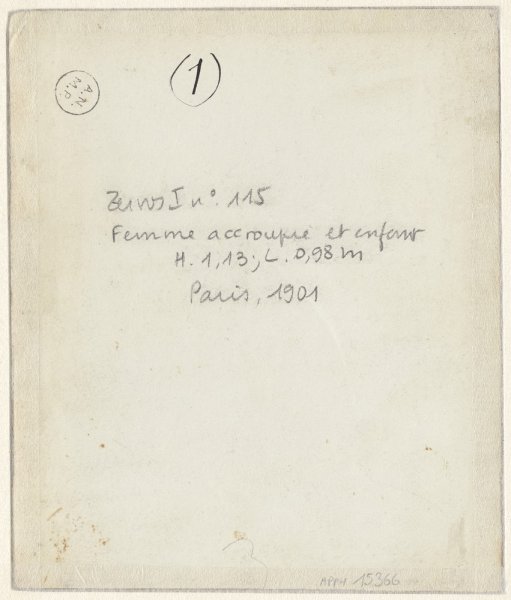 A.N.
M.P.
(1)
Zervos I n°. 115
Femme accroupie et enfant
H. 1,13 ; L. 0,98 m
Paris, 1901
MPPH 15366